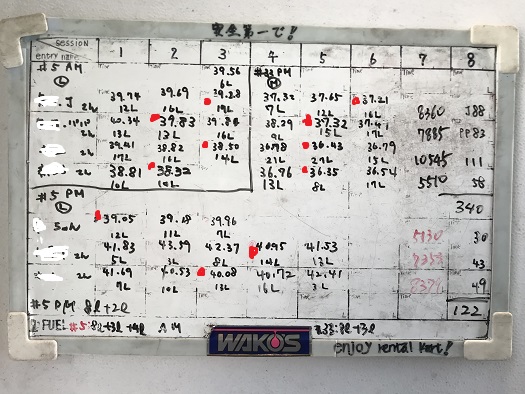 安全第一で!
SESSION 1 2 3 4 5 6 7 8
entry name
#5 AM 39.56 #33 PM
Ⓛ 16L Ⓗ
J 39.74 39.69 39.28 37.32 37.65 37.21
2h 12L 16L 19L 7L 12L 16L 8360 J88
パパ 40.34 37.83 39.86 38.29 37.32 37.41
2h 13L 13L 16L 9L 15L 17L 7885 PP83
39.41 38.82 38.50 36.98 36.43 36.79
2h 17L 16L 14L 21L 27L 15L 10545 111
38.81 38.32 36.76 36.35 36.54 5510 58
2h 16L 10L 13L 8L 17L
340
#5 PM
Ⓛ 39.05 39.18 39.96
Son 12L 11L 7L 5130 30
41.83 43.59 42.37 40.95 41.53
2h 5L 3L 8L 14L 13L 8353 43
41.69 40.53 40.08 40.72 42.41
2h 7L 10L 13L 16L 3L 8379 49
#5 PM 8l+2l 122
FUEL #5:8l+3l+4l AM #33:8l+3l
WAKO'S
enjoy rental kart!